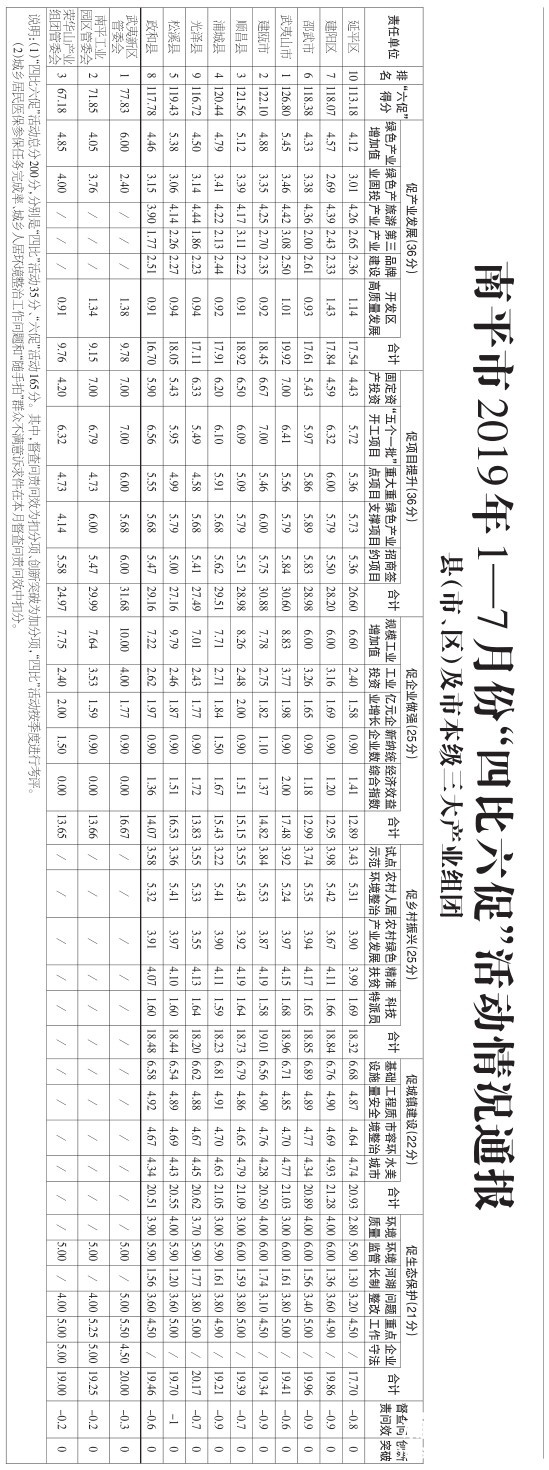 南平市2019年1—7月份“四比六促”活动情况通报
县(市、区)及市本级三大产业组团
责任单位 排名 “六促”得分 促产业发展(36分) 促项目提升(36分) 促企业做强(25分) 促乡村振兴(25分) 促城镇建设(22分) 促生态保护(21分) 督查问责问效 创新突破
绿色产业增加值 绿色产业固投 旅游产业 第三产业 品牌建设 开发区高质量发展 合计 固定资产投资 “五个一批”开工项目 重大重点项目 绿色产业支撑项目 招商签约项目 合计 规模工业增加值 工业投资 亿元企业增长 新纳统企业数 经济效益综合指数 合计 试点示范 农村人居环境整治 农村绿色产业发展 精准扶贫 科技特派员 合计 基础设施 工程质量安全 市容环境整治 水美城市 合计 环境质量 环境监管 河湖长制 问题整改 重点工作 企业守法 合计
延平区 10 113.18 4.12 3.01 4.26 2.65 2.36 1.14 17.54 4.43 5.72 5.36 5.73 5.36 26.60 6.60 2.40 1.58 0.90 1.41 12.89 3.43 5.31 3.90 3.99 1.69 18.32 6.68 4.87 4.64 4.74 20.93 2.80 5.90 1.30 3.20 4.50 / 17.70 -0.8 0
建阳区 7 118.07 4.57 2.69 4.39 2.43 2.33 1.43 17.84 4.59 6.32 6.00 5.79 5.50 28.20 6.00 3.16 1.69 0.90 1.20 12.95 3.98 5.42 3.67 4.11 1.66 18.84 6.76 4.90 4.69 4.93 21.28 4.00 6.00 1.36 3.60 4.90 / 19.86 -0.9 0
邵武市 6 118.38 4.33 3.38 4.36 2.00 2.61 0.93 17.61 5.43 5.97 5.86 5.89 5.83 28.98 6.00 3.26 1.65 0.90 1.18 12.99 3.74 5.35 3.94 4.17 1.65 18.85 6.89 4.89 4.77 4.34 20.89 4.00 6.00 1.56 3.40 5.00 / 19.96 -0.9 0
武夷山市 1 126.80 5.45 3.46 4.42 3.08 2.50 1.01 19.92 7.00 6.41 5.56 5.79 5.84 30.60 8.83 3.77 1.98 0.90 2.00 17.48 3.92 5.24 3.97 4.15 1.68 18.96 6.71 4.85 4.70 4.77 21.03 3.00 6.00 1.61 3.80 5.00 / 19.41 -0.6 0
建瓯市 2 122.10 4.88 3.35 4.25 2.70 2.35 0.92 18.45 6.67 7.00 5.46 6.00 5.75 30.88 7.78 2.75 1.82 1.10 1.37 14.82 3.84 5.53 3.87 4.19 1.58 19.01 6.56 4.90 4.76 4.28 20.50 4.00 6.00 1.74 3.10 4.50 / 19.34 -0.9 0
顺昌县 3 121.56 5.12 3.39 4.17 3.11 2.22 0.91 18.92 6.50 6.09 5.09 5.79 5.51 28.98 8.26 2.48 2.00 0.90 1.51 15.15 3.55 5.43 3.92 4.19 1.64 18.73 6.79 4.86 4.65 4.79 21.09 3.00 6.00 1.59 3.80 5.00 / 19.39 -0.7 0
浦城县 4 120.44 4.79 3.41 4.22 2.13 2.44 0.92 17.91 6.20 6.10 5.91 5.68 5.62 29.51 7.71 2.71 1.84 1.50 1.67 15.43 3.22 5.41 3.90 4.11 1.59 18.23 6.81 4.91 4.70 4.63 21.05 3.00 5.90 1.61 3.80 4.90 / 19.21 -0.9 0
光泽县 9 116.72 4.50 3.14 4.44 1.86 2.23 0.94 17.11 6.33 5.49 4.58 5.68 5.41 27.49 7.01 2.43 1.77 0.90 1.72 13.83 3.55 5.33 3.55 4.13 1.64 18.20 6.62 4.88 4.67 4.45 20.62 3.70 5.90 1.77 3.80 5.00 / 20.17 -0.7 0
松溪县 5 119.43 5.38 3.06 4.14 2.26 2.27 0.94 18.05 5.43 5.95 4.99 5.79 5.00 27.16 9.79 2.46 1.87 0.90 1.51 16.53 3.36 5.41 3.97 4.10 1.60 18.44 6.54 4.89 4.69 4.43 20.55 4.00 5.90 1.20 3.60 5.00 / 19.70 -1 0
政和县 8 117.78 4.46 3.15 3.90 1.77 2.51 0.91 16.70 5.90 6.56 5.55 5.68 5.47 29.16 7.22 2.62 1.97 0.90 1.36 14.07 3.58 5.32 3.91 4.07 1.60 18.48 6.58 4.92 4.67 4.34 20.51 3.90 5.90 1.56 3.60 4.50 / 19.46 -0.6 0
武夷新区管委会 1 77.83 6.00 2.40 / / / 1.38 9.78 7.00 7.00 6.00 5.68 6.00 31.68 10.00 4.00 1.77 0.90 0.00 16.67 / / / / / / / / / / / / 5.00 / 5.00 5.50 4.50 20.00 -0.3 0
南平工业园区管委会 2 71.85 4.05 3.76 / / / 1.34 9.15 7.00 6.79 4.73 6.00 5.47 29.99 7.64 3.53 1.59 0.90 0.00 13.66 / / / / / / / / / / / / 5.00 / 4.00 5.25 5.00 19.25 -0.2 0
荣华山产业组团管委会 3 67.18 4.85 4.00 / / / 0.91 9.76 4.20 6.32 4.73 4.14 5.58 24.97 7.75 2.40 2.00 1.50 0.00 13.65 / / / / / / / / / / / / 5.00 / 4.00 5.00 5.00 19.00 -0.2 0
说明：(1)“四比六促”活动总分200分，分别是“四比”活动35分、“六促”活动165分。其中，督查问责问效为扣分项、创新突破为加分项，“四比”活动按季度进行考评。
(2)城乡居民医保参保任务完成率、城乡人居环境整治工作问题和“随手拍”群众不满意诉求件在本月督查问责问效中扣分。